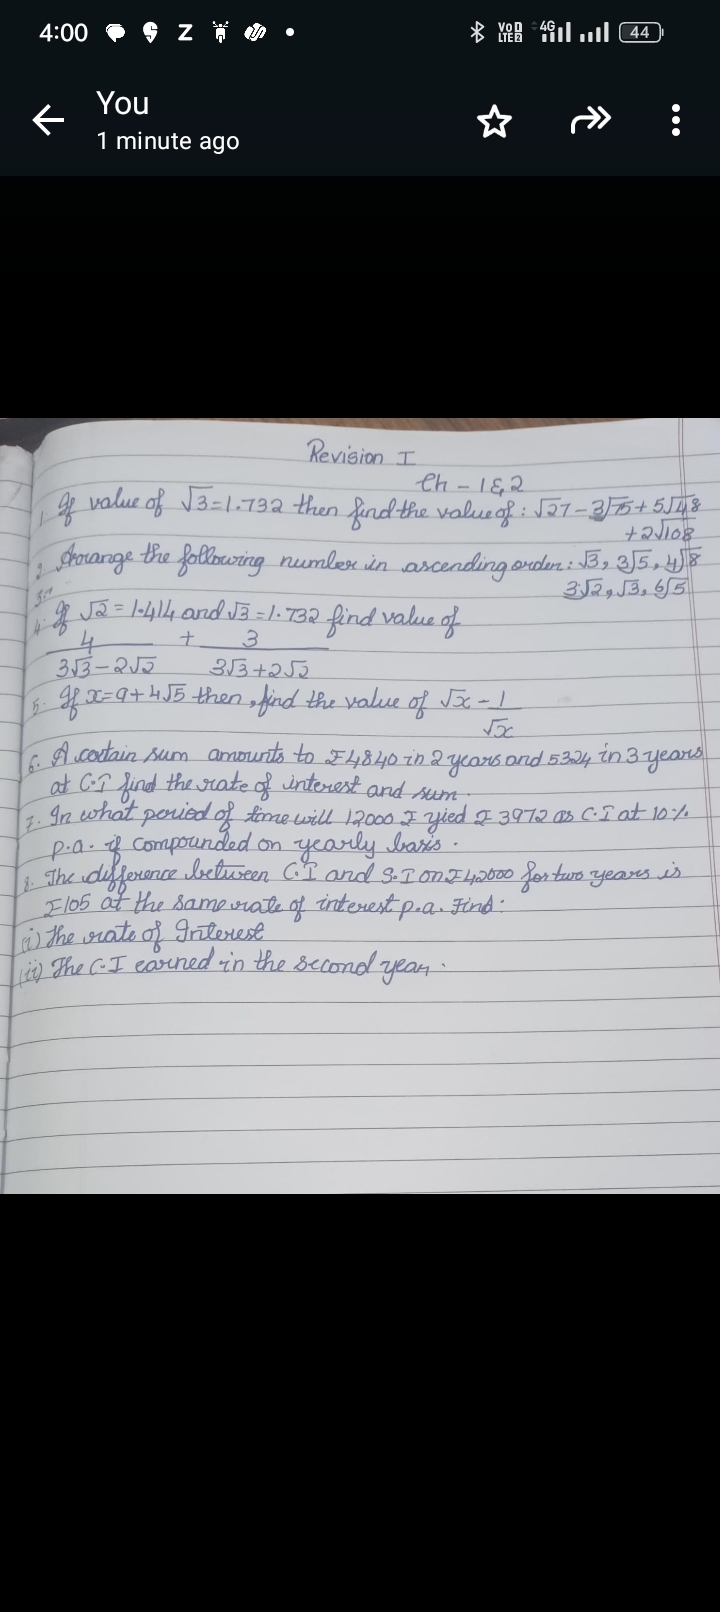 4:00
Z
VoD
LTE2
4G
44
You
1 minute ago
Revision I
Ch - 1 & 2
1. If value of √3=1.732 then find the value of : √27 - 3√75 + 5√48
+2√108
2. Arrange the following number in ascending order : √3, 3√5, 4√8
3. 3√2, √3, 6√5
4. If √2 = 1.414 and √3 = 1.732 find value of
4 + 3
3√3-2√2 3√3+2√2
5. If x=9+4√5 then, find the value of √x - 1
√x
6. A certain sum amounts to ₹4840 in 2 years and 5324 in 3 years
at C.I find the rate of interest and sum.
7. In what period of time will 12000 ₹ yied ₹ 3972 as C.I at 10%
p.a. if compounded on yearly basis.
8. The difference between C.I and S.I on ₹42000 for two years is
₹105 at the same rate of interest p.a. Find:
(i) The rate of Interest
(ii) The C.I earned in the second year.